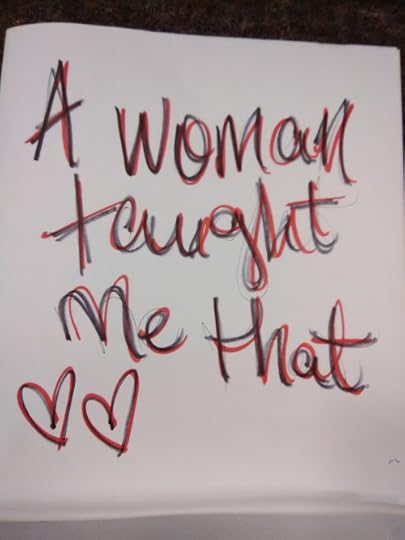 A Woman
taught
Me that